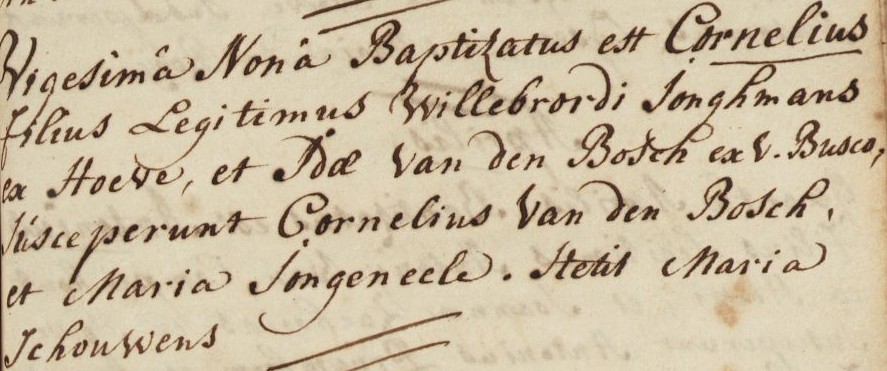 Vigesimâ Nonâ Baptizatus est Cornelius
filius Legitimus Willebrordi Jonghmans
ex Hoeve, et Idæ Van den Bosch ex V. Busco,
susceperunt Cornelius Van den Bosch,
et Maria Jongeneele. Stetit Maria
Schouwens